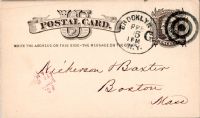 POSTAL CARD.
WRITE THE ADDRESS ON THIS SIDE - THE MESSAGE ON THE OTHER
BROOKLYN
1 PM
N.Y.
Dickerson & Baxter
Boston
Mass